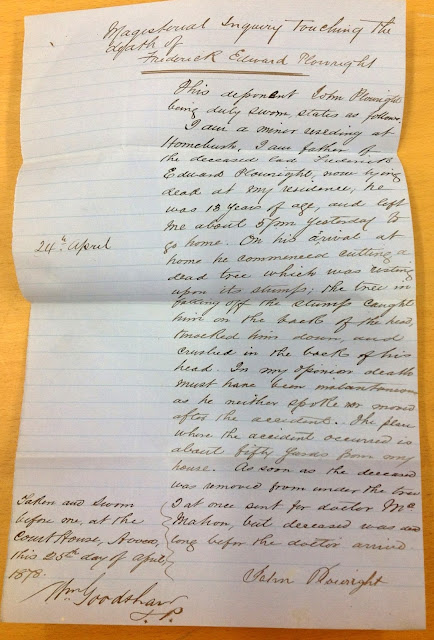 Magisterial Inquiry touching the
death of
Frederick Edward Plowright
This deponent John Plowright
being duly sworn, states as follows,
I am a miner residing at
Homebush, I am father of
the deceased lad Frederick
Edward Plowright, now lying
dead at my residence, he
was 13 years of age, and left
me about 5 pm yesterday to
24th April
go home. On his arival at
home he commenced cutting a
dead tree which was resting
upon its stumps; the tree in
falling off the stumps caught
him on the back of the head,
knocked him down, and
crushed in the back of his
head. In my opinion death
must have been instantaneous
as he neither spoke nor moved
after the accident. The place
where the accident occurred is
about fifty yards from my
house. As soon as the deceased
was removed from under the tree
I at once sent for doctor Mc
Mahon, but deceased was dead
long before the doctor arrived.
John Plowright
Taken and sworn
before me, at the
Court House, Avoca,
this 25th day of April,
1878.
Wm Goodshaw
J.P.